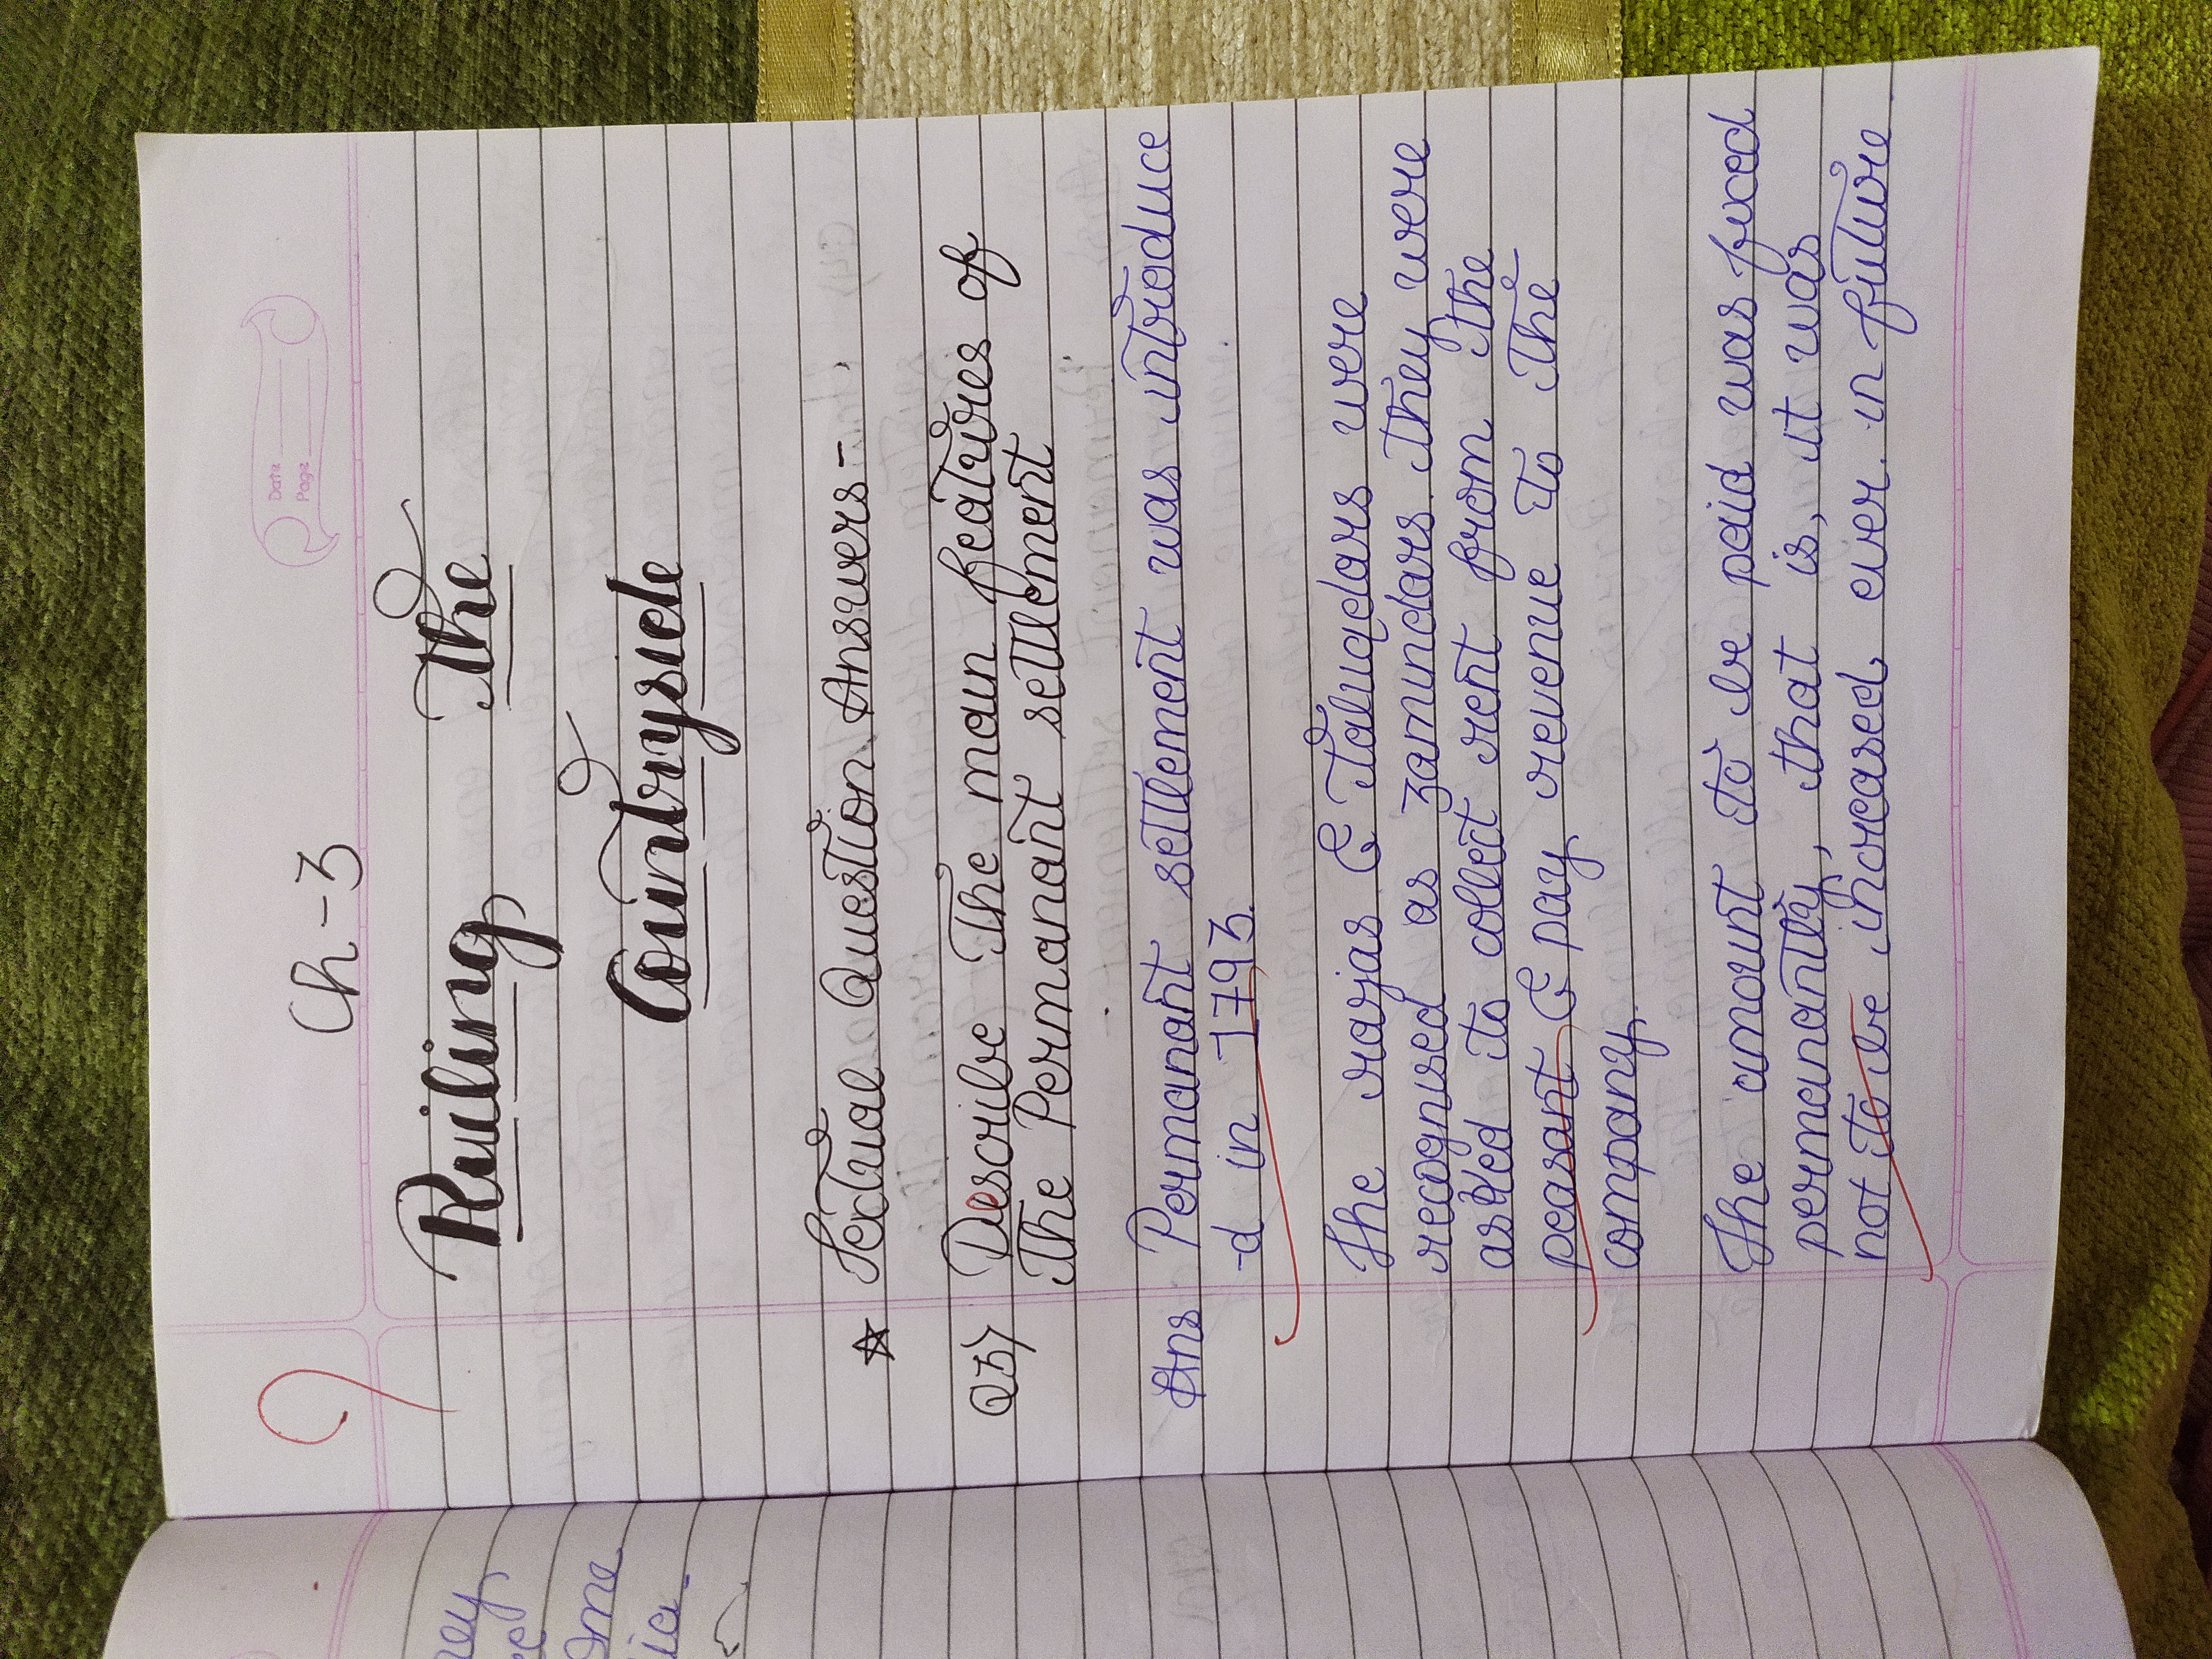 Ch-3
Date
Page
Ruiling The
Countryside
☆ Textual Question Answers-
Q3) Describe The main features of
The Permanant settlement
Ans Permanant settlement was introduce
-d in 1793.
The rajas & Taluqdars were
recognised as zamindars. They were
asked to collect rent from the
peasant & pay revenue to The
company.
The amount to be paid was fixed
permanantly, that is, it was
not to be increased ever in future
ney
ome
ia.